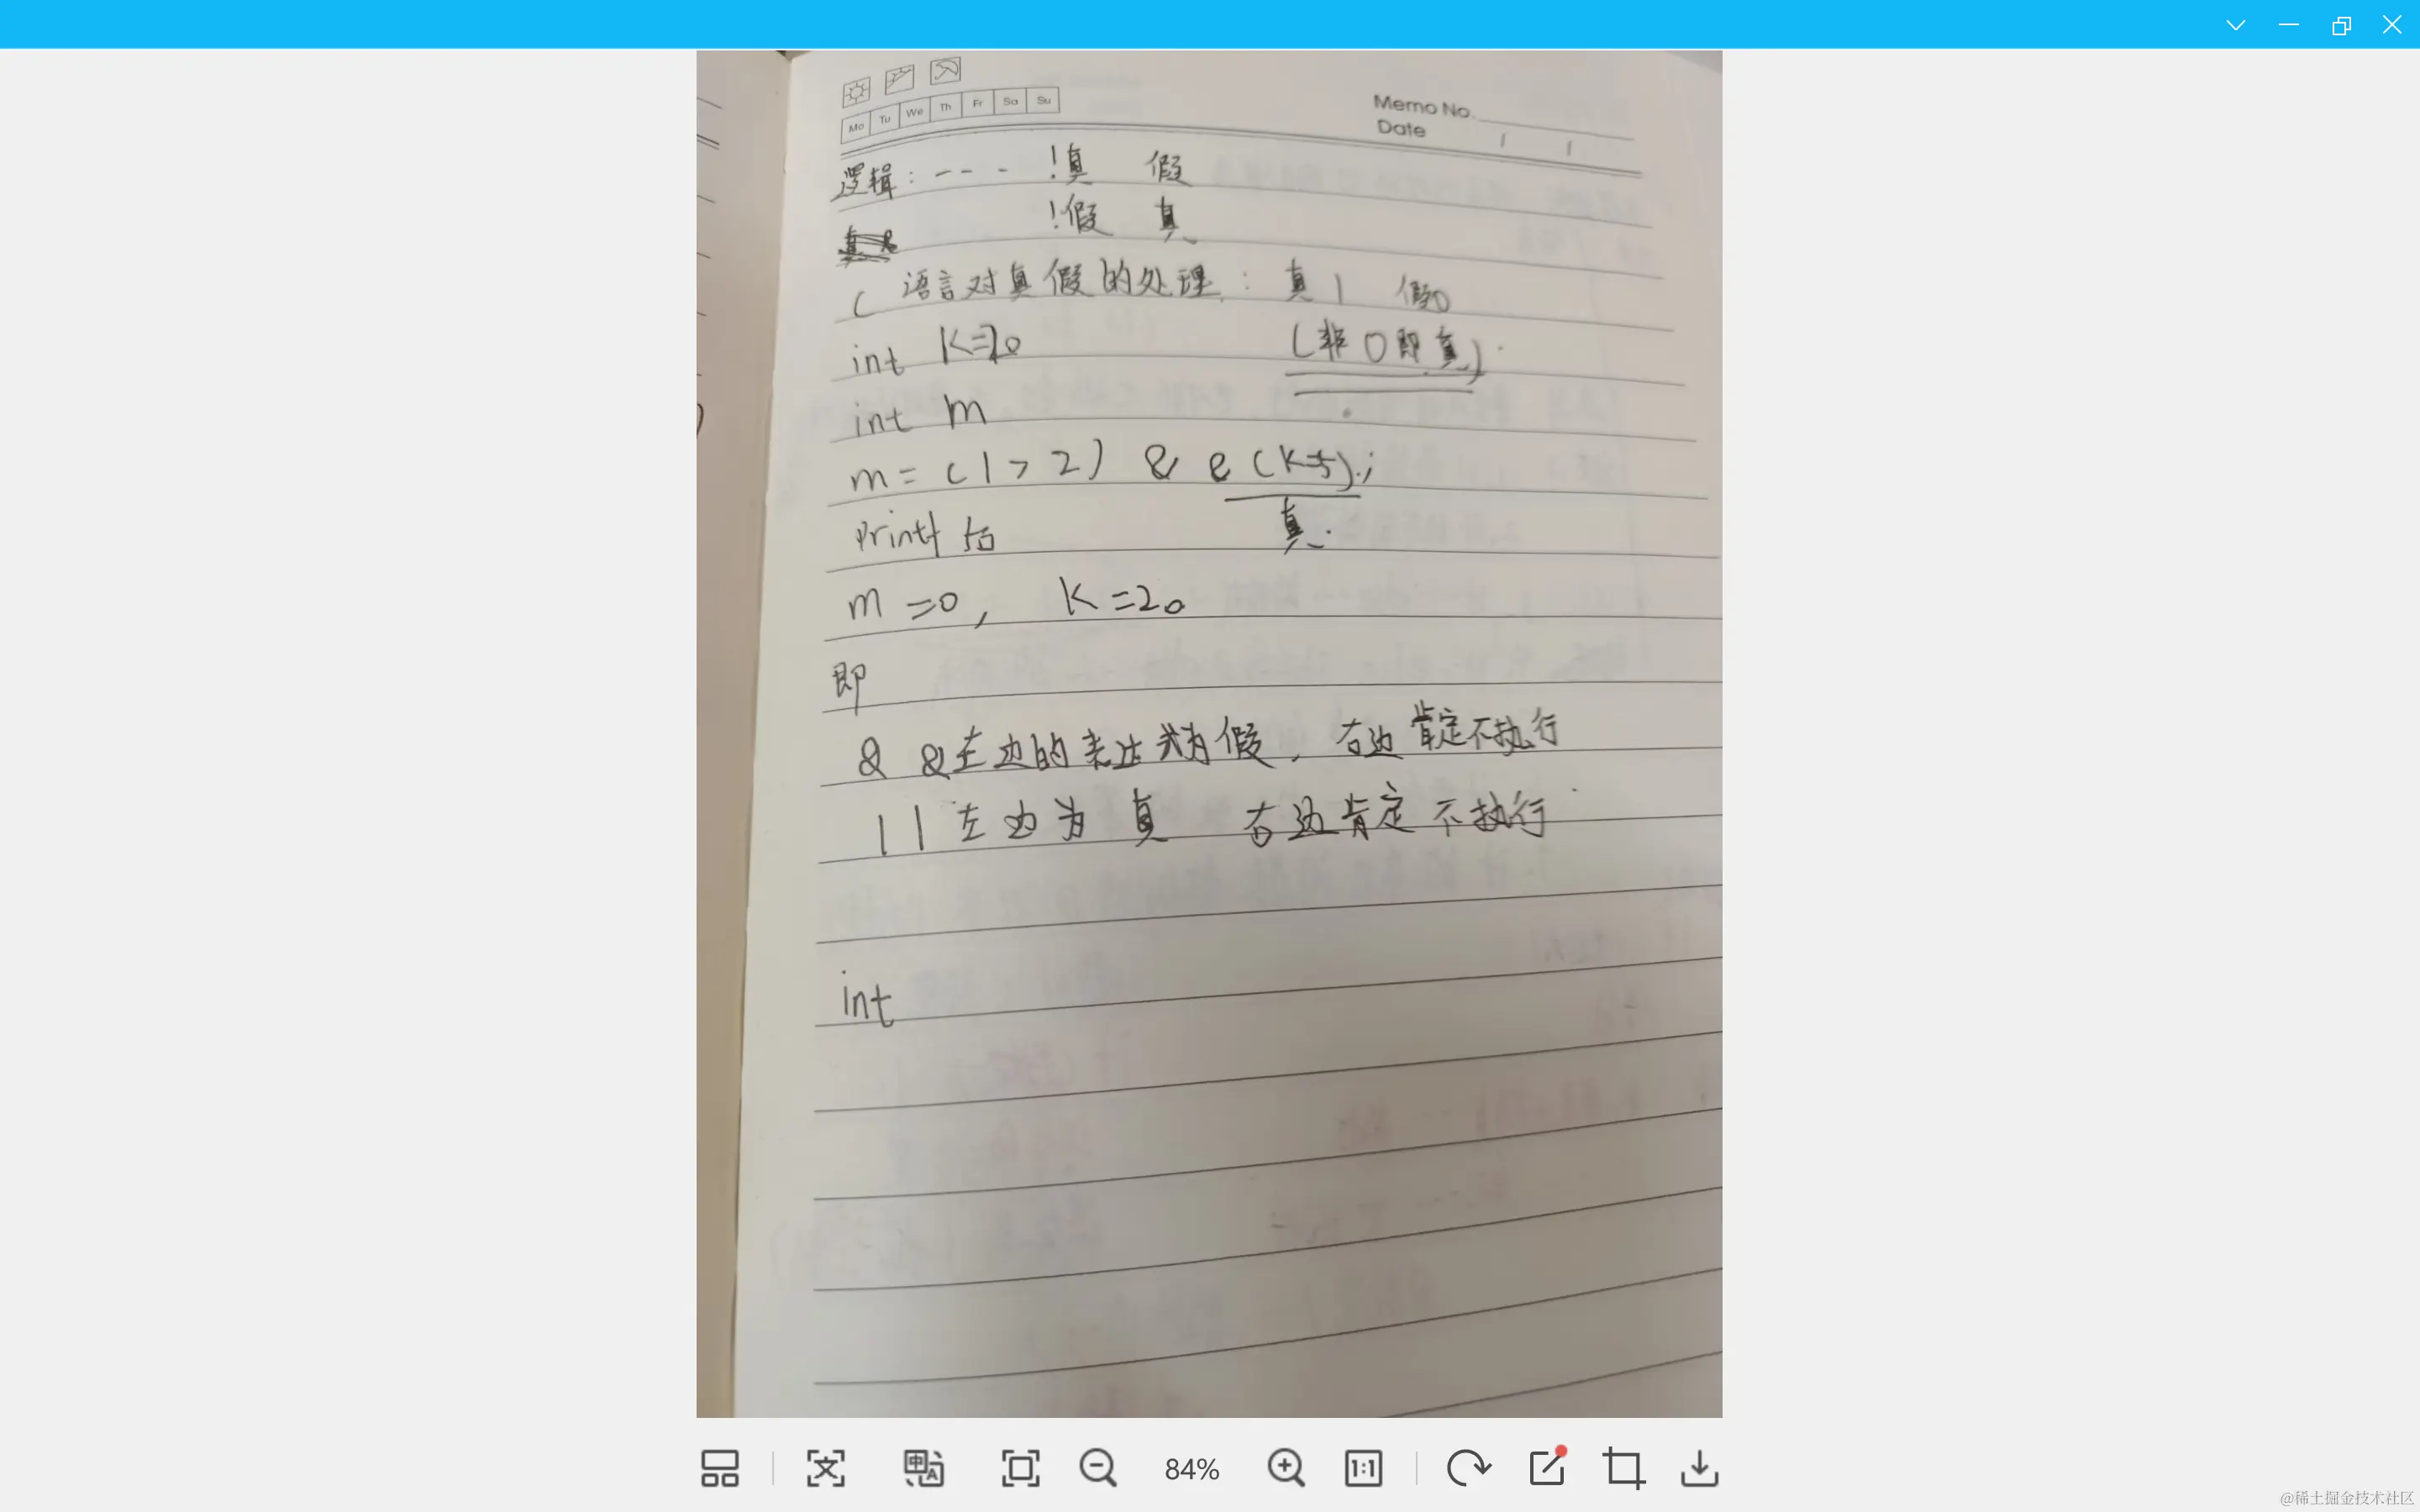 Mo Tu We Th Fr Sa Su
Memo No.
Date / /
逻辑: - - - !真 假
!假 真
C 语言对真假的处理: 真1 假0
int K=20 (非0即真)
int m
m = (1 > 2) & & (K=5);
printf 后 真.
m =0, K =20
即
& &左边的表达式为假, 右边肯定不执行
||左边为真 右边肯定不执行
int
84%
1:1
@稀土掘金技术社区